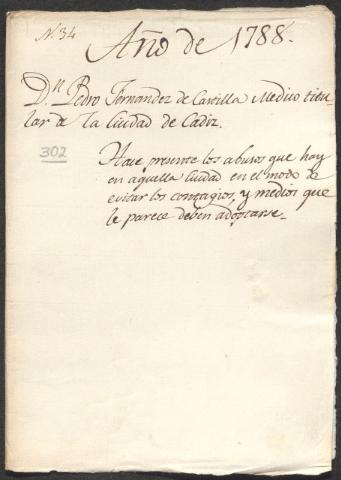 N. 34
Año de 1788.
D.n Pedro Fernandez de Castilla Medico titu-
lar de la Ciudad de Cadiz.
302
Hace presente los abusos que hay
en aquella Ciudad en el modo de
evitar los contagios, y medios que
le parece deben adoptarse.